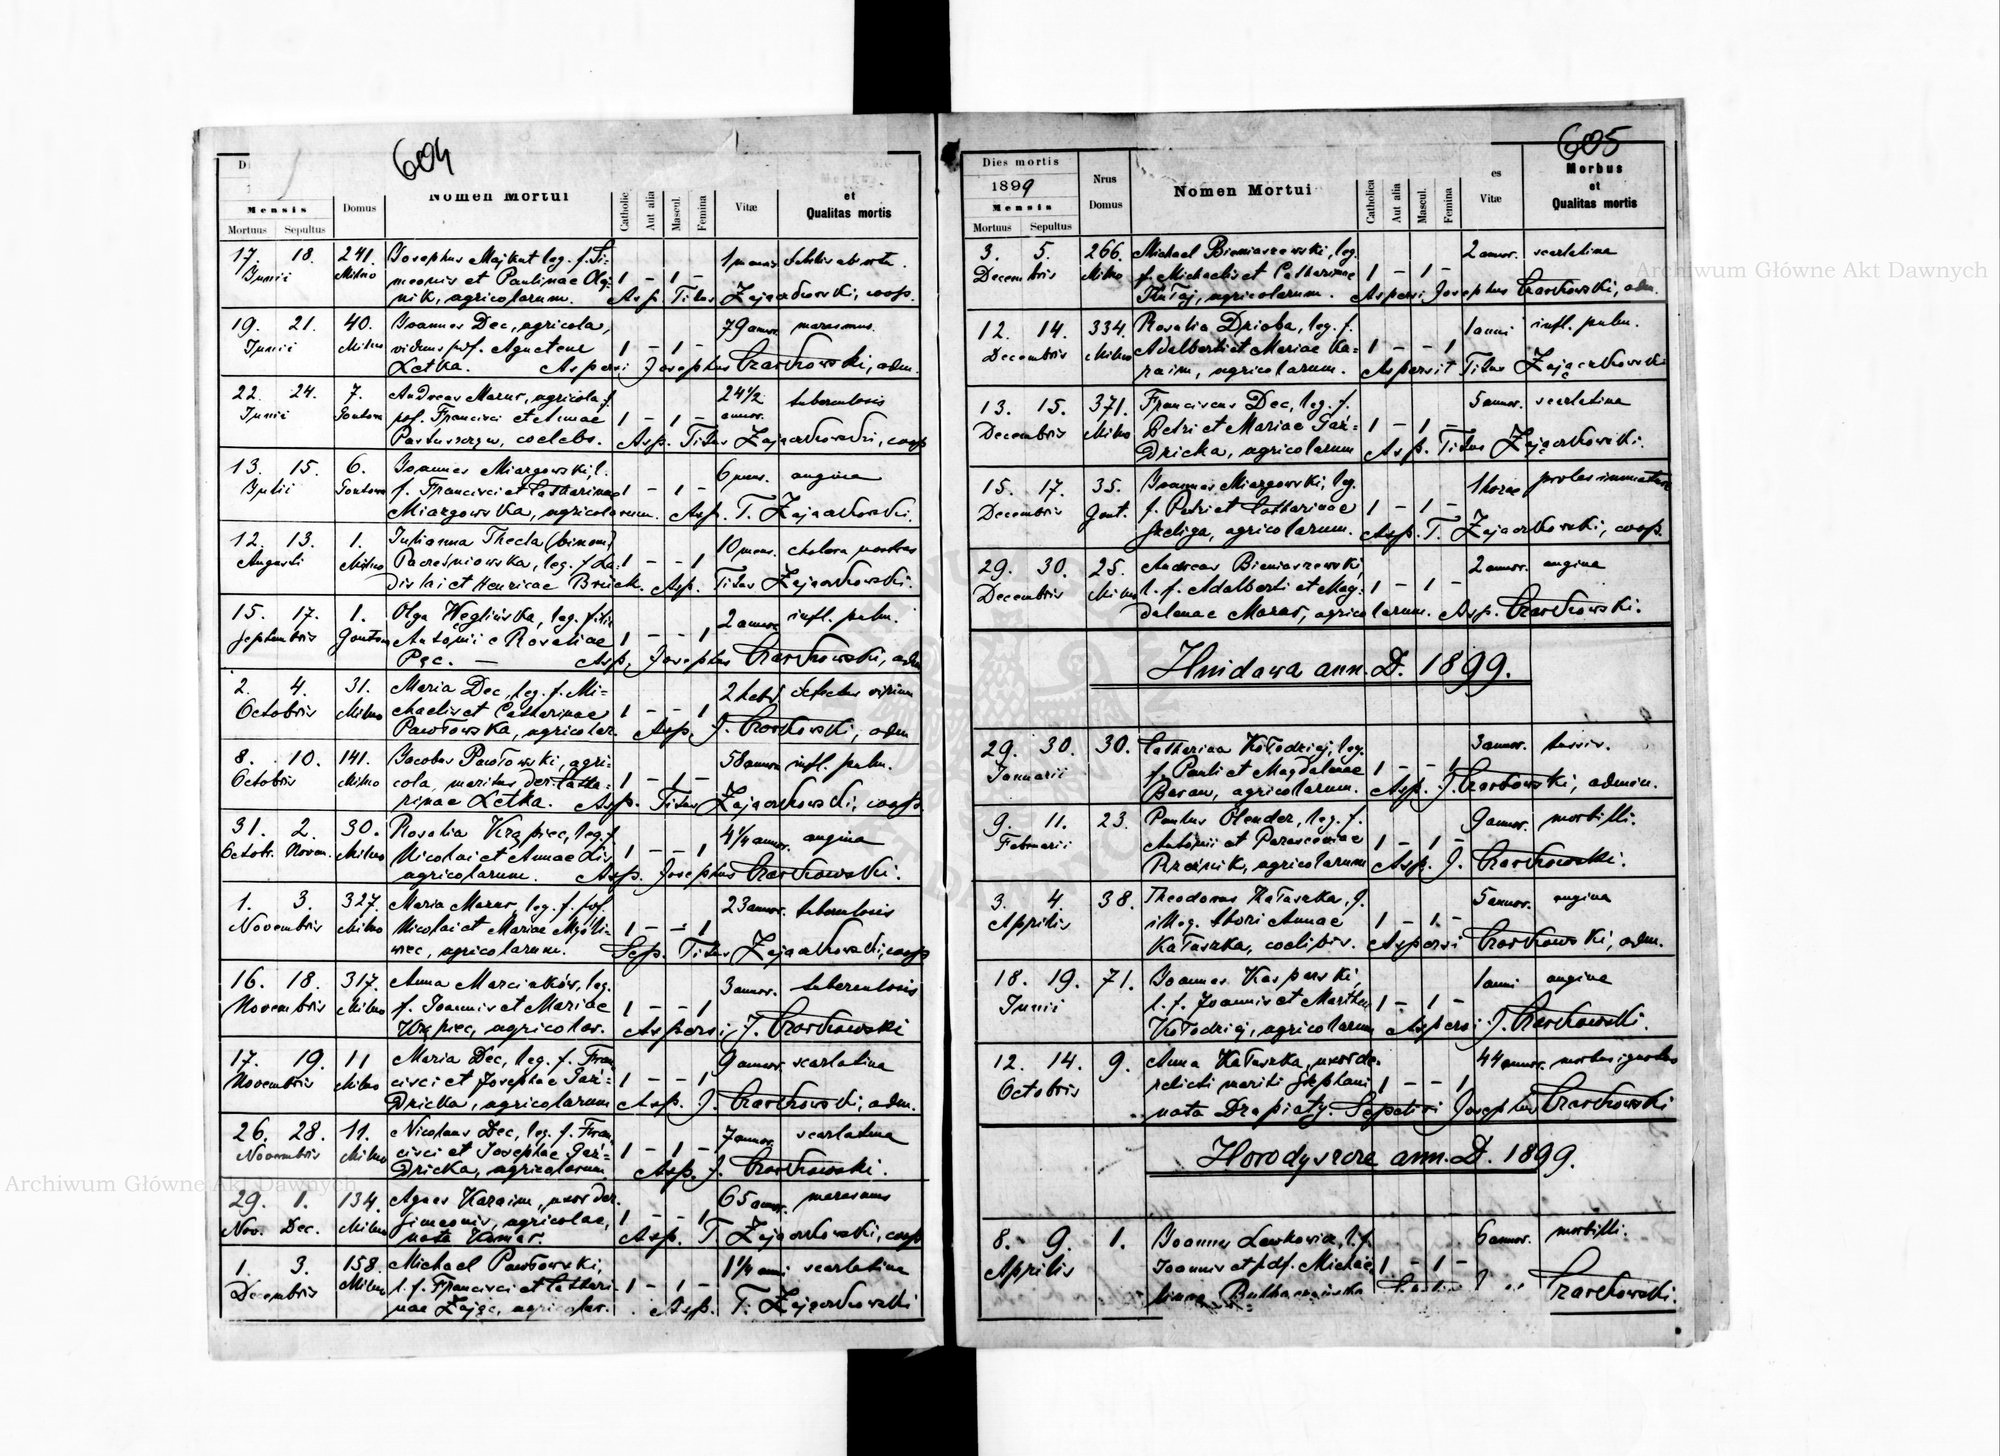 604
D
Mensis
Mortuus Sepultus
Domus
Nomen Mortui
Catholic
Aut alia
Mascul.
Femina
Vitæ
et
Qualitas mortis
17. 18. 241. Josephus Majkut leg. f. Si- 1 mensis debilis ab ortu.
Junii Milno meonis et Paulinae Olej- 1 – 1 –
nik, agricolarum. Asp. Titus Zajączkowski, coop.
19. 21. 40. Joannes Dec, agricola, 79 annor. marasmus.
Junii Milno viduus post. Agnetem 1 – 1 –
Letka. Aspersi Josephus Czarkowski, adm.
22. 24. 7. Andreas Mazur, agricola, f. 24 1/2 tuberculosis
Junii Gontowa post. Francisci et Annae 1 – 1 – annor.
coelebs. Asp. Titus Zajączkowski, coop
13. 15. 6. Joannes Miazgowski l. 6 mens. angina
Julii Gontowa f. Francisci et Catharinae 1 – 1 –
Miazgowska, agricolarum. Asp. T. Zajączkowski.
12. 13. 1. Julianna Thecla (binom) 10 mens. cholera nostras
Augusti Milno leg. f. La- 1 – – 1
dislai et Henricae Asp. Titus Zajączkowski.
15. 17. 1. Olga Weglińska, leg. filia 2 annor. infl. pulm.
Septembris Gontowa Antonii e Rosaliae 1 – – 1
Pęc. – Asp. Josephus Czarkowski, adm
2. 4. 31. Maria Dec, leg. f. Mi- 2 hebd. defectus virium
Octobris Milno chaelis et Catharinae 1 – – 1
Pawłowska, agricolar. Asp. J. Czarkowski, adm
8. 10. 141. Jacobus Pawłowski, agri- 58 annor. infl. pulm.
Octobris Milno cola, maritus der. Catha- 1 – 1 –
rinae Letka. Asp. Titus Zajączkowski, coop.
31. 2. 30. Rosalia Krąpiec, leg. f. 4 1/4 annor. angina
Octobr. Novem. Milno Nicolai et Annae Lis 1 – – 1
agricolarum. Asp. Josephus Czarkowski.
1. 3. 327. Maria Mazur, leg. f. post. 23 annor. tuberculosis
Novembris Milno Nicolai et Mariae Myśli- 1 – – 1
wiec, agricolarum. Sep. Titus Zajączkowski, coop
16. 18. 317. Anna Marcinków, leg. 3 annor. tuberculosis
Novembris Milno f. Joannis et Mariae 1 – – 1
Krąpiec, agricolar. Aspersi J. Czarkowski
17. 19. 11 Maria Dec, leg. f. Fran 9 annor. scarlatina
Novembris Milno cisci et Josephae Gaź- 1 – – 1
dzicka, agricolarum Asp. J. Czarkowski, adm.
26. 28. 11. Nicolaus Dec, leg. f. Fran 7 annor. scarlatina
Novembris Milno cisci et Josephae Gaź- 1 – 1 –
dzicka, agricolarum Asp. J. Czarkowski.
29. 1. 134. Agnes Karaim, uxor der. 65 annor. marasmus
Nov. Dec. Milno Simeonis, agricolae, 1 – – 1
nata Asp. T. Zajączkowski, coop
1. 3. 158. Michael Pawłowski, 1 1/4 anni scarlatina
Decembris Milno l. f. Francisci et Cathari 1 – 1 –
nae Zając, agricolar. Asp. T. Zajączkowski
605
Dies mortis
1899
Mensis
Mortuus Sepultus
Nrus
Domus
Nomen Mortui
Catholica
Aut alia
Mascul.
Femina
es
Vitæ
Morbus
et
Qualitas mortis
3. 5. 266. Michael Bieniaszewski, leg. 2 annor. scarlatina
Decembris Milno f. Michaelis et Catharinae 1 – 1 –
agricolarum. Aspersi Josephus Czarkowski, adm.
12. 14. 334. Rosalia Dzioba, leg. f. 1 anni infl. pulm.
Decembris Milno Adalberti et Mariae Ka- 1 – – 1
raim, agricolarum. Aspersit Titus Zajączkowski
13. 15. 371. Franciscus Dec, leg. f. 5 annor. scarlatina
Decembris Milno Petri et Mariae Gaź- 1 – 1 –
dzicka, agricolarum Asp. Titus Zajączkowski.
15. 17. 35. Joannes Miazgowski, leg. 1 horae proles immatura
Decembris Gont. f. Petri et Catharinae 1 – 1 –
Szeliga, agricolarum. Asp. T. Zajączkowski, coop.
29. 30. 25. Andreas Bieniaszewski, 2 annor. angina
Decembris Milno l. f. Adalberti et Mag- 1 – 1 –
dalenae Mazur, agricolarum. Asp. Czarkowski.
Hnidawa ann. D. 1899.
29. 30. 30. Catharina Kołodziej, leg. 3 annor. tussis.
Januarii f. Pauli et Magdalenae 1 – – 1
Baran, agricolarum. Asp. J. Czarkowski, admin.
9. 11. 23. Paulus Olender, leg. f. 9 annor. morbilli.
Februarii Antonii et Parasceviae 1 – 1 –
agricolarum Asp. J. Czarkowski.
3. 4. 38. Theodorus Kałuszka, f. 5 annor. angina
Aprilis illeg. thori Annae 1 – 1 –
Kałuszka, coelibis. Aspersi Czarkowski, adm.
18. 19. 71. Joannes Kasperski, 1 anni angina
Junii l. f. Joannis et Marthae 1 – 1 –
Kołodziej, agricolarum Aspersi J. Czarkowski.
12. 14. 9. Anna Kałuszka, uxor de- 44 annor. morbus ignotus
Octobris relicti mariti Stephani 1 – – 1
nata Drapiaty. Sepelivi Josephus Czarkowski
Horodyszcze ann. D. 1899.
8. 9. 1. Joannes Lewkowicz, l. f. 6 annor. morbilli.
Aprilis Joannis et pdf. Michae 1 – 1 –
linae Czarkowski.
Archiwum Główne Akt Dawnych
Archiwum Główne Akt Dawnych